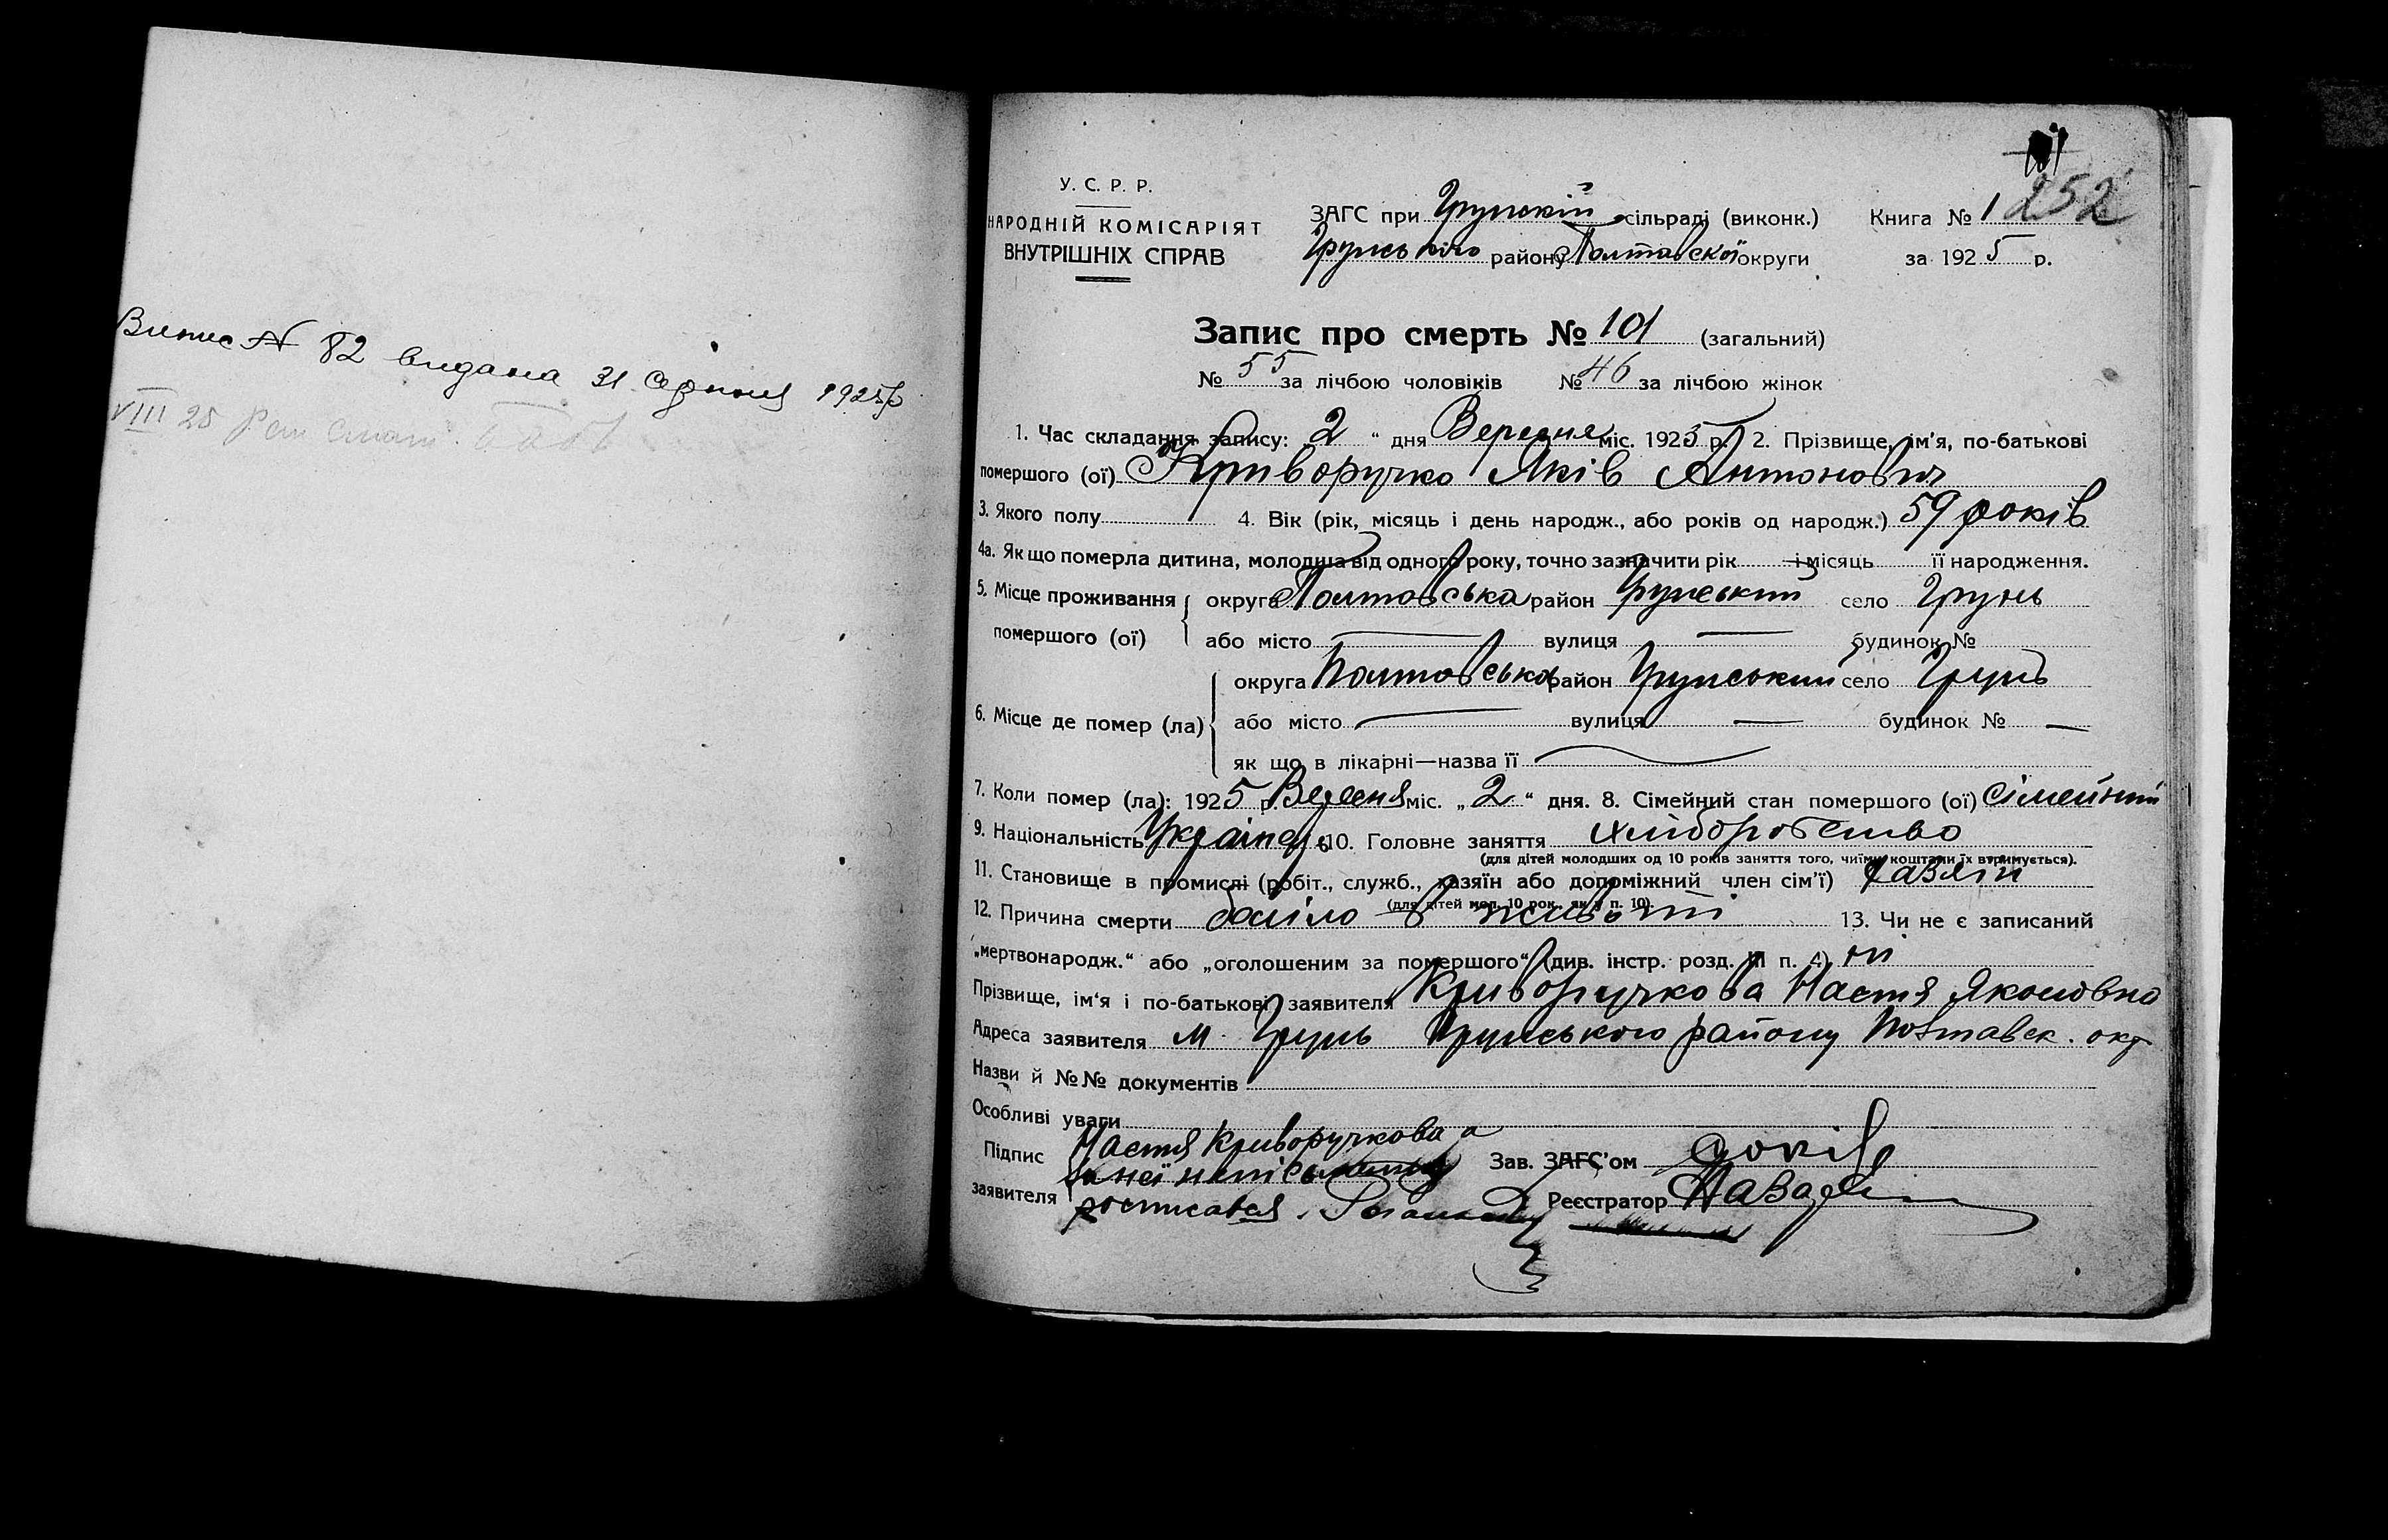 Випис № 82 видана 31 серпня 1925 р
VIII 25
101
252
У. С. Р. Р.
НАРОДНІЙ КОМІСАРІЯТ
ВНУТРІШНІХ СПРАВ
ЗАГС при Грунскій сільраді (виконк.)
Грунського району Полтавскої округи
Книга № 1
за 1925 р.
Запис про смерть № 101 (загальний)
№ 55 за лічбою чоловіків № 46 за лічбою жінок
1. Час складання запису: 2 “ дня Вересня міс. 1925 р. 2. Прізвище, ім’я, по-батькові
помершого (ої) Криворучко Яків Антонович
3. Якого полу 4. Вік (рік, місяць і день народж., або років од народж.) 59 років
4а. Як що померла дитина, молодша від одного року, точно зазначити рік і місяць її народження.
5. Місце проживання помершого (ої) округа Полтавська район Грунський село Грунь
або місто — вулиця — будинок №
6. Місце де помер (ла) округа Полтавська район Грунський село Грунь
або місто — вулиця — будинок № —
як що в лікарні—назва її —
7. Коли помер (ла): 1925 р. Вересня міс. „ 2 “ дня. 8. Сімейний стан помершого (ої) сімейний
9. Національність Українець 10. Головне заняття хліборобство
(для дітей молодших од 10 років заняття того, чиїми коштами їх втримується).
11. Становище в промислі (робіт., служб., хазяїн або допоміжний член сім’ї) хазяїн
(для дітей мол. 10 рок. як у п. 10).
12. Причина смерти боліло в животі 13. Чи не є записаний
„мертвонародж.“ або „оголошеним за помершого“ (див. інстр. розд. III п. 4) ні
Прізвище, ім‘я і по-батькові заявителя Криворучкова Настя Якововна
Адреса заявителя м. Грунь Грунського району Полтавск. окр
Назви й №№ документів
Особливі уваги
Підпис заявителя Настя Криворучкова а
за неї неписьменну
росписався
Зав. ЗАГС’ом
Реєстратор